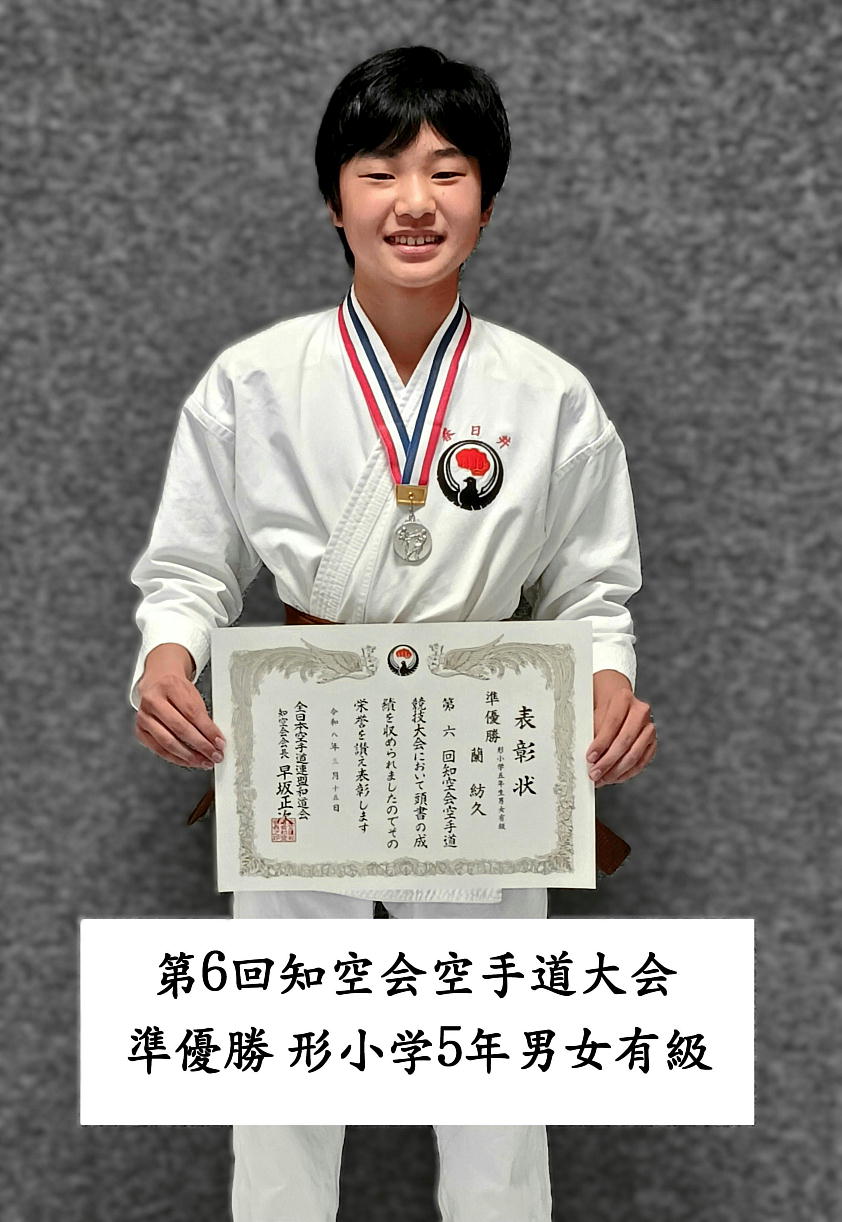 春日井
表彰状
準優勝 形小学五年生男女有級
蘭 紡久
第六回知空会空手道
競技大会において頭書の成
績を収められましたのでその
栄誉を讃え表彰します
令和八年三月十五日
全日本空手道連盟和道会
知空会会長 早坂正次
第6回知空会空手道大会
準優勝 形小学5年男女有級